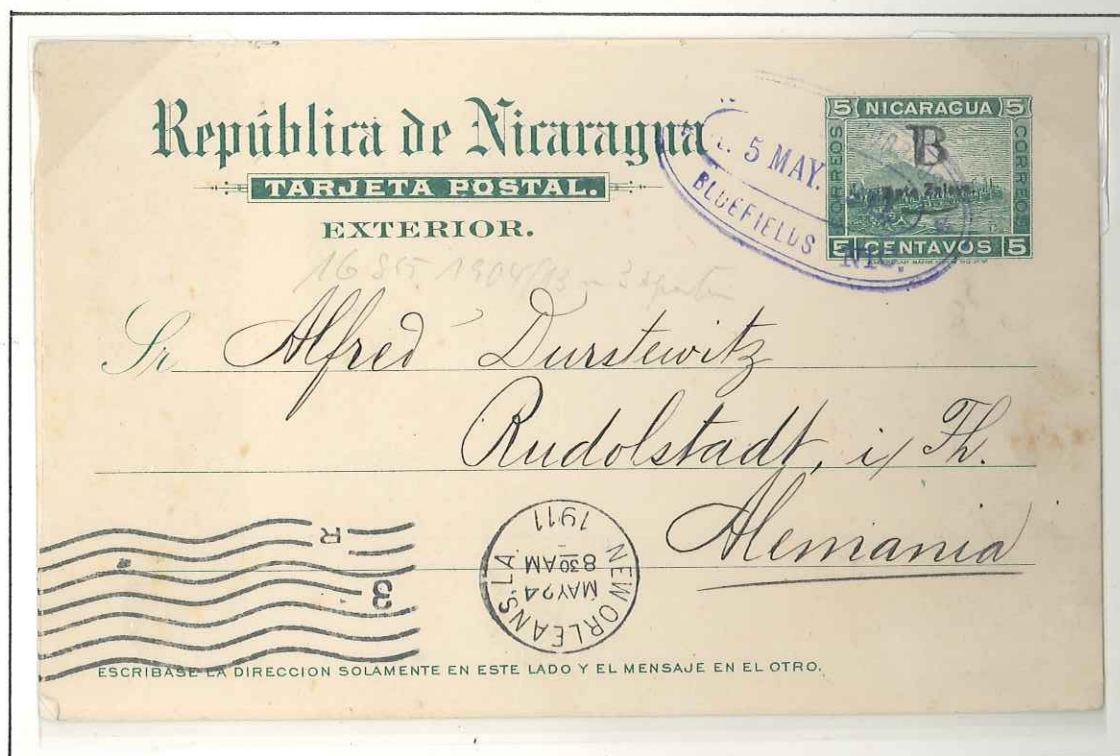 República de Nicaragua
TARJETA POSTAL.
EXTERIOR.
5 NICARAGUA 5
CORREOS
CORREOS
B
Dpto. Zelaya.
5 CENTAVOS 5
5 MAY.
BLUEFIELDS
NIC.
Sr Alfred Durstewitz
Rudolstadt, i/Th.
Alemania
R
3
NEW ORLEANS, LA
MAY 24
830 AM
1911
ESCRIBASE LA DIRECCION SOLAMENTE EN ESTE LADO Y EL MENSAJE EN EL OTRO.